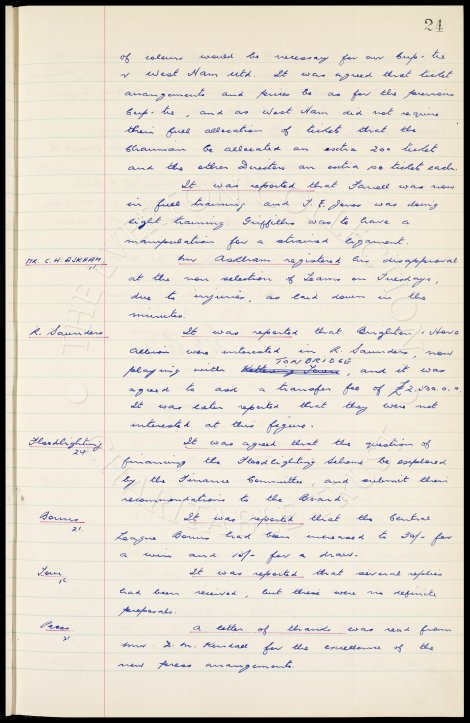 24
of colours would be necessary for our Cup-tie
v West Ham Utd. It was agreed that ticket
arrangements and prices be as for the previous
Cup-tie, and as West Ham did not require
their full allocation of tickets that the
Chairman be allocated an extra 200 tickets
and the other Directors an extra 100 tickets each.
It was reported that Farrell was now
in full training and T. E. Jones was doing
light training. Griffiths was to have a
manipulation for a strained ligament.
MR. C. H. ASKHAM
Mr Askham registered his disapproval
at the non selection of Teams on Tuesdays,
due to injuries, as laid down in the
minutes.
R. Saunders
It was reported that Brighton & Hove
Albion were interested in R. Saunders, now
TONBRIDGE
playing with Kettering Town, and it was
agreed to ask a transfer fee of £2,500.0.0.
It was later reported that they were not
interested at this figure.
Floodlighting
24
It was agreed that the question of
financing the Floodlighting Scheme be explored
by the Finance Committee, and submit their
recommendations to the Board.
Bonus
21.
It was reported that the Central
League Bonus had been increased to 30/- for
a win and 10/- for a draw.
Tour
16.
It was reported that several replies
had been received, but there were no definite
proposals.
Press
21.
A letter of thanks was read from
Mr. Kendall for the excellence of the
new press arrangements.